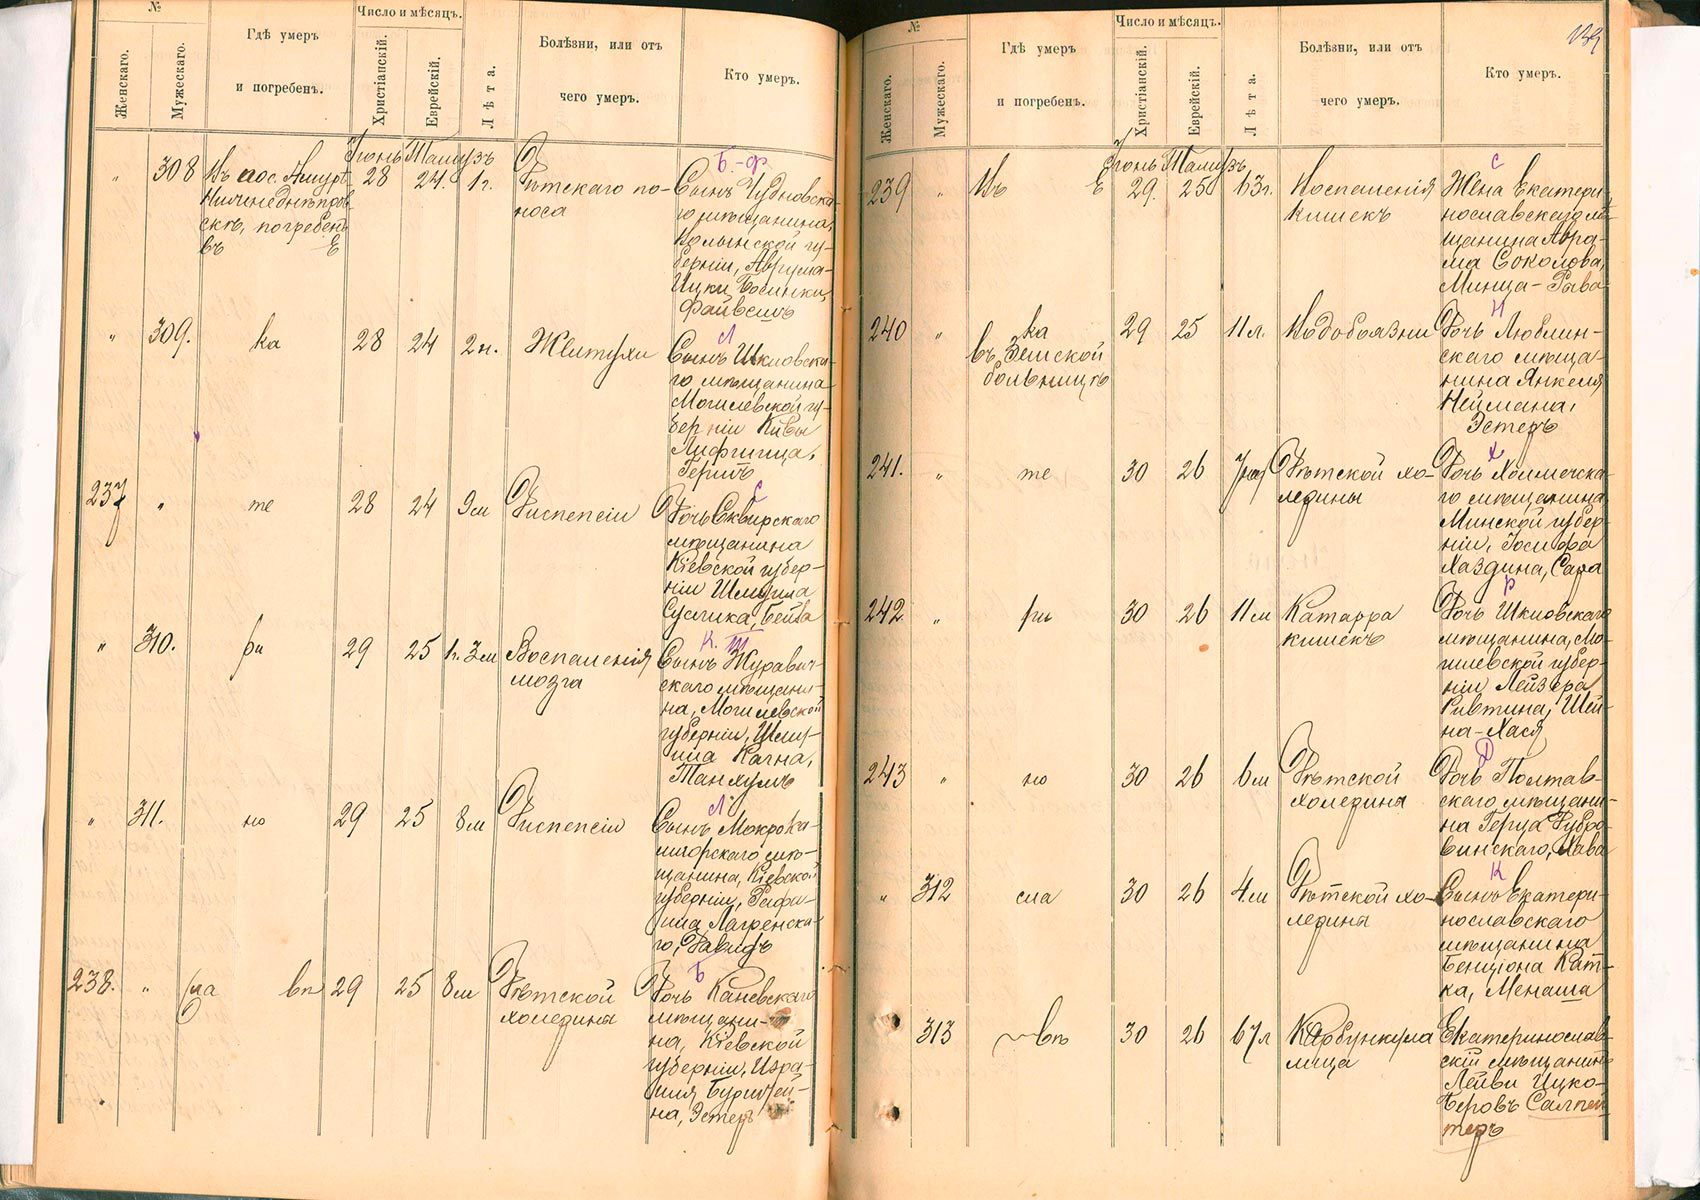 №
Женскаго.
Мужескаго.
Гдѣ умеръ
и погребенъ.
Число и мѣсяцъ.
Христіанскій.
Еврейскій.
Лѣта.
Болѣзни, или отъ
чего умеръ.
Кто умеръ.
Іюнь Тамузъ
Б.-Ф
" 308 Въ пос. Амуръ 28 24. 1 г. Дѣтскаго по-
носа
Нижнеднѣпров
скъ, погребенъ
въ Е
Сынъ Чудновска-
го мѣщанина,
Волынской гу-
берніи, Аврума-
Ицки
Файвешъ
Л
" 309. ка 28 24 2 н. Желтухи
Сынъ Шкловска-
го мѣщанина
Могилевской гу-
берніи Кивы
Лифшица,
Гершъ
С
237 " те 28 24 9 м Диспепсіи
Дочь Сквирскаго
мѣщанина
Кіевской губер-
ніи Шмуила
Суслика, Бейла
К. Т
" 310. ри 29 25 1 г. 3 м Воспаленія
мозга
Сынъ Журавич-
скаго мѣщани-
на, Могилевской
губерніи, Шму-
ила Кагна,
Танхумъ
Л
" 311. но 29 25 8 м Диспепсіи
Сынъ Мокрока-
лигорскаго мѣ-
щанина, Кіевской
губерніи, Рафа-
ила Лагренска-
го, Давидъ
Б
238. " сла въ 29 25 8 м Дѣтской
холерины
Дочь Каневскаго
мѣщани-
на, Кіевской
губерніи, Изра-
иля Бурштей-
на, Эстеръ
139
№
Женскаго.
Мужескаго.
Гдѣ умеръ
и погребенъ.
Число и мѣсяцъ.
Христіанскій.
Еврейскій.
Лѣта.
Болѣзни, или отъ
чего умеръ.
Кто умеръ.
Іюнь Тамузъ
С
239 " Въ Е 29. 25 63 г. Воспаленія
кишекъ
Жена Екатери-
нославскаго мѣ-
щанина Авра-
ма Соколова,
Минца-Рыва
Н
240 " ка 29 25 11 л. Водобоязни
въ Земской
больницѣ
Дочь Люблин-
скаго мѣща-
нина Янкеля
Неймана,
Эстеръ
Х
241. " те 30 26 Дѣтской хо-
лерины
Дочь
го мѣщанина
Минской губер-
ніи, Іосифа
Хаздина, Сара
Р
242 " ри 30 26 11 м Катарра
кишекъ
Дочь Шкловскаго
мѣщанина, Мо-
гилевской губер-
ніи Лейзера
Ривтина, Шей-
на-Хася
Д
243 " но 30 26 6 м Дѣтской
холерины
Дочь Полтав-
скаго мѣщани-
на Герца Дубро-
винскаго, Хава
К
" 312 сла 30 26 4 м Дѣтской хо-
лерины
Сынъ Екатери-
нославскаго
мѣщанина
Бенціона Кат-
ка, Менаша
313 въ 30 26 67 л Карбункула
лица
Екатеринослав-
скій мѣщанинъ
Лейви Ицко-
Беровъ Салпе-
теръ